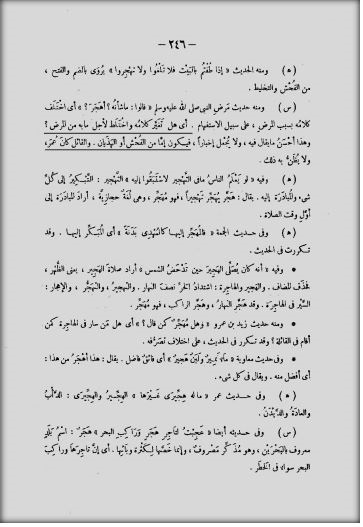 — ٢٤٦ —
( ه ) ومنه الحديث « إذا طُفْتُم بالبَيْت فلا تَلْغُوا ولا تَهْجُروا » يُرْوَى بالضم والفتح ،
من الفُحْش والتخليط .
( س ) ومنه حديث مَرض النبى صلى الله عليه وسلم « قالوا : ماشَأنُه ؟ أهَجَر ؟ » أى اختَلَف
كلامُه بسبب المرضِ ، على سبيل الاستفهام . أى هل تَغَيَّر كلامُه واخْتَلط لأجل مابه من المَرض ؟
وهذا أحْسَنُ مايقال فيه ، ولا يُجْعل إخباراً ، فيكون إمَّا من الفُحْش أو الهَذَيان . والقائلُ كان عُمَرَ ،
ولا يُظَنُّ به ذلك .
( ه ) وفيه « لو يَعْلَم الناسُ مافى التَّهْجِير لاسْتَبَقُوا إليه » التَّهْجِير : التَّبْكِير إلى كُلِّ
شىء والمُبادَرَة إليه . يقال : هَجَّر يُهَجِّر تَهْجِيراً ، فهو مُهَجِّر ، وهى لُغَةٌ حجازيَّة ، أراد المُبادَرةَ إلى
أوّلِ وقت الصلاة .
( ه ) وفى حديث الجمعة « فالمُهَجِّر إليها كالمُهْدِى بَدَنَة » أى المُبَكِّر إليها . وقد
تكررت فى الحديث .
• وفيه « أنه كان يُصَلِّى الهَجِيرَ حين تَدْحَضُ الشمس » أراد صلاة الهَجِير ، يعنى الظُّهْر ،
فحَذف المُضاف . والهَجِير والهاجِرة : اشتدادُ الحَرِّ نصفَ النهار . والتَّهجيرُ ، والتَّهَجُّر ، والإهجار :
السَّيْر فى الهاجرة . وقد هَجَّر النهارُ ، وهَجَّر الراكب ، فهو مُهَجِّر .
• ومنه حديث زيد بن عمرو « وهل مُهَجِّرٌ كمن قال ؟ » أى هل مَن سار فى الهاجرة كمن
أقام فى القائلة ؟ وقد تكرر فى الحديث ، على اختلاف تَصَرُّفه .
• وفى حديث معاوية « ماءٌ نَمِيرٌ ولَبَنٌ هَجِيرٌ » أى فائقٌ فاضل . يقال : هذا أهْجَرُ من هذا :
أى أفضل منه . ويقال فى كل شىء .
( ه ) وفى حديث عمر « ماله هِجِّيرَى غيرَها » الهِجِّيرُ والهِجِّيرَى : الدَّأبُ
والعادةُ والدَّيْدَنُ .
( س ) وفى حديثه أيضا « عَجِبْتُ لتاجِرِ هَجَرَ ورَاكِبِ البحرِ » هَجَرُ : اسمُ بَلَدٍ
معروف بالبَحْرَيْن ، وهو مُذَكَّر مَصْروف ، وإنما خَصَّها لِكَثْرة وبائِها . أى إنَّ تاجِرَها وراكِبَ
البحر سَواءٌ فى الخَطَر .